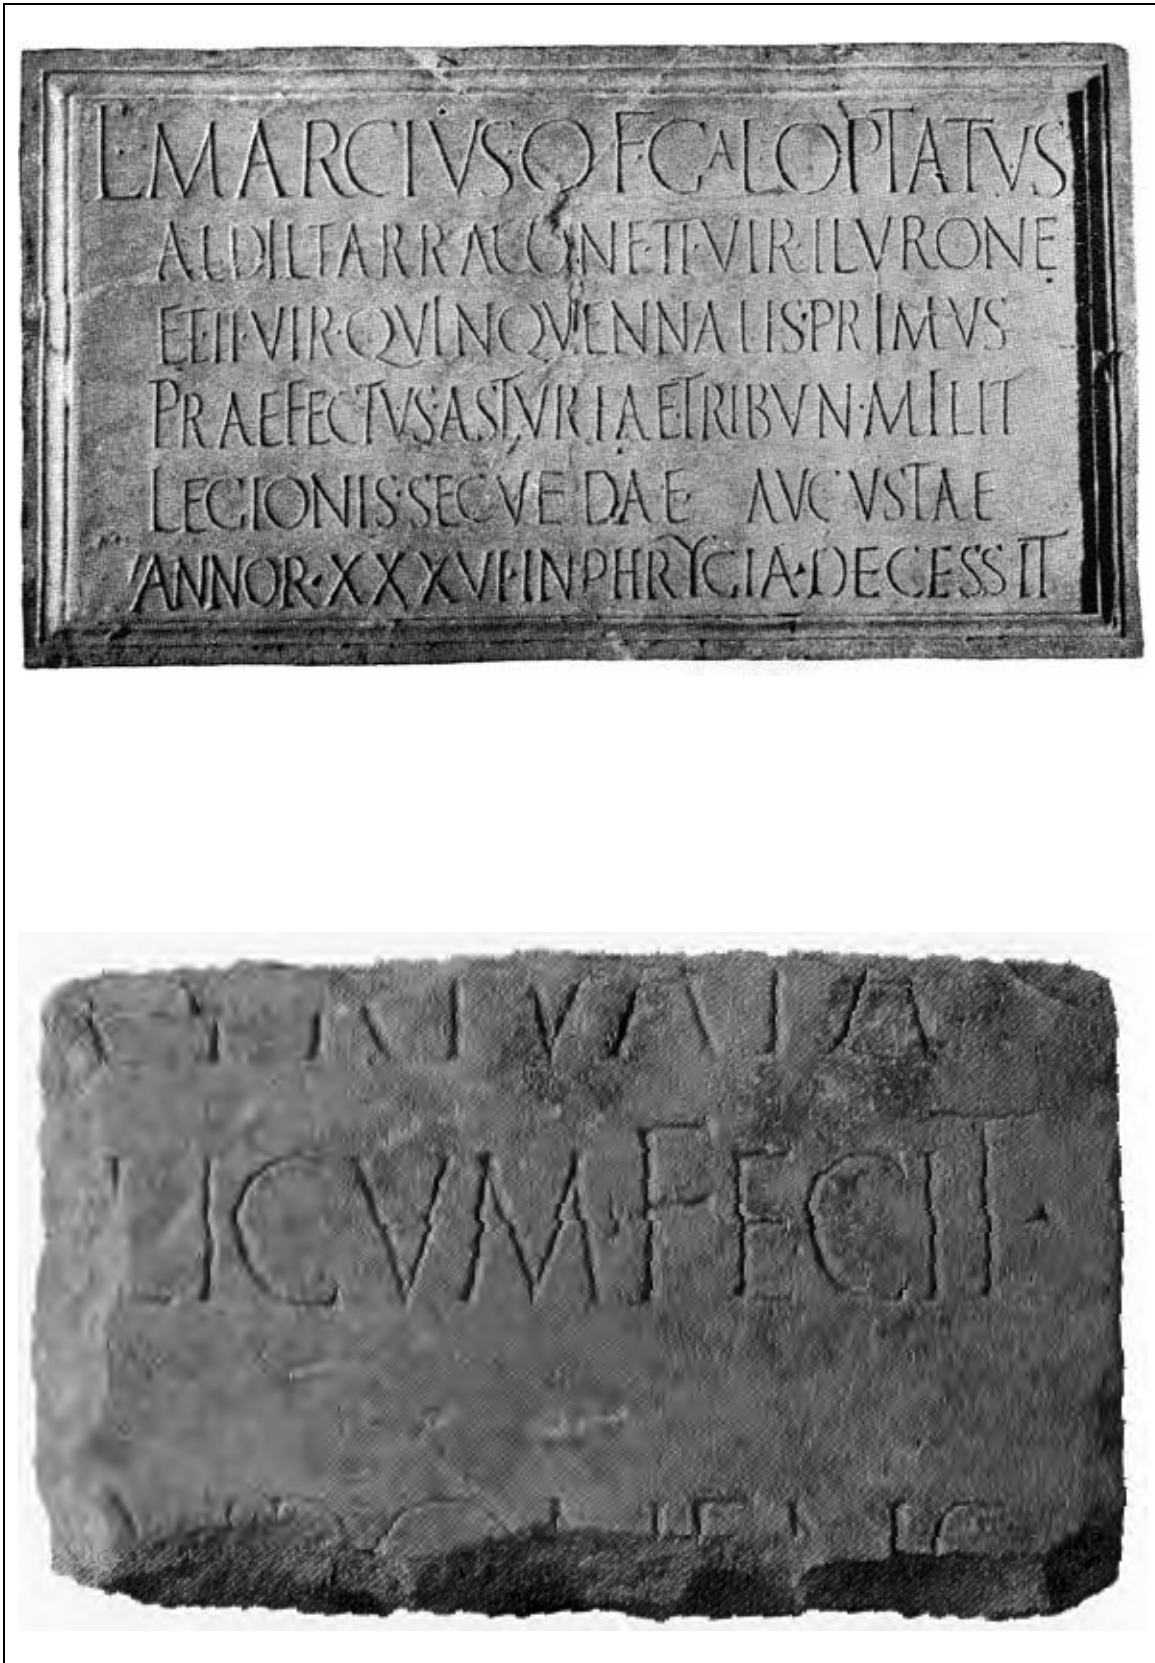 L·MARCIVS·Q·F·GAL·OPTATVS
AEDIL·TARRACONE·II·VIR·ILVRONE
ET·II·VIR·QVINQVENNALIS·PRIMVS
PRAEFECTVS·ASTVRIAE·TRIBVN·MILIT
LEGIONIS·SECVNDAE· AVGVSTAE
ANNOR·XXXVI·IN·PHRYGIA·DECESSIT
LICVM·FECIT·